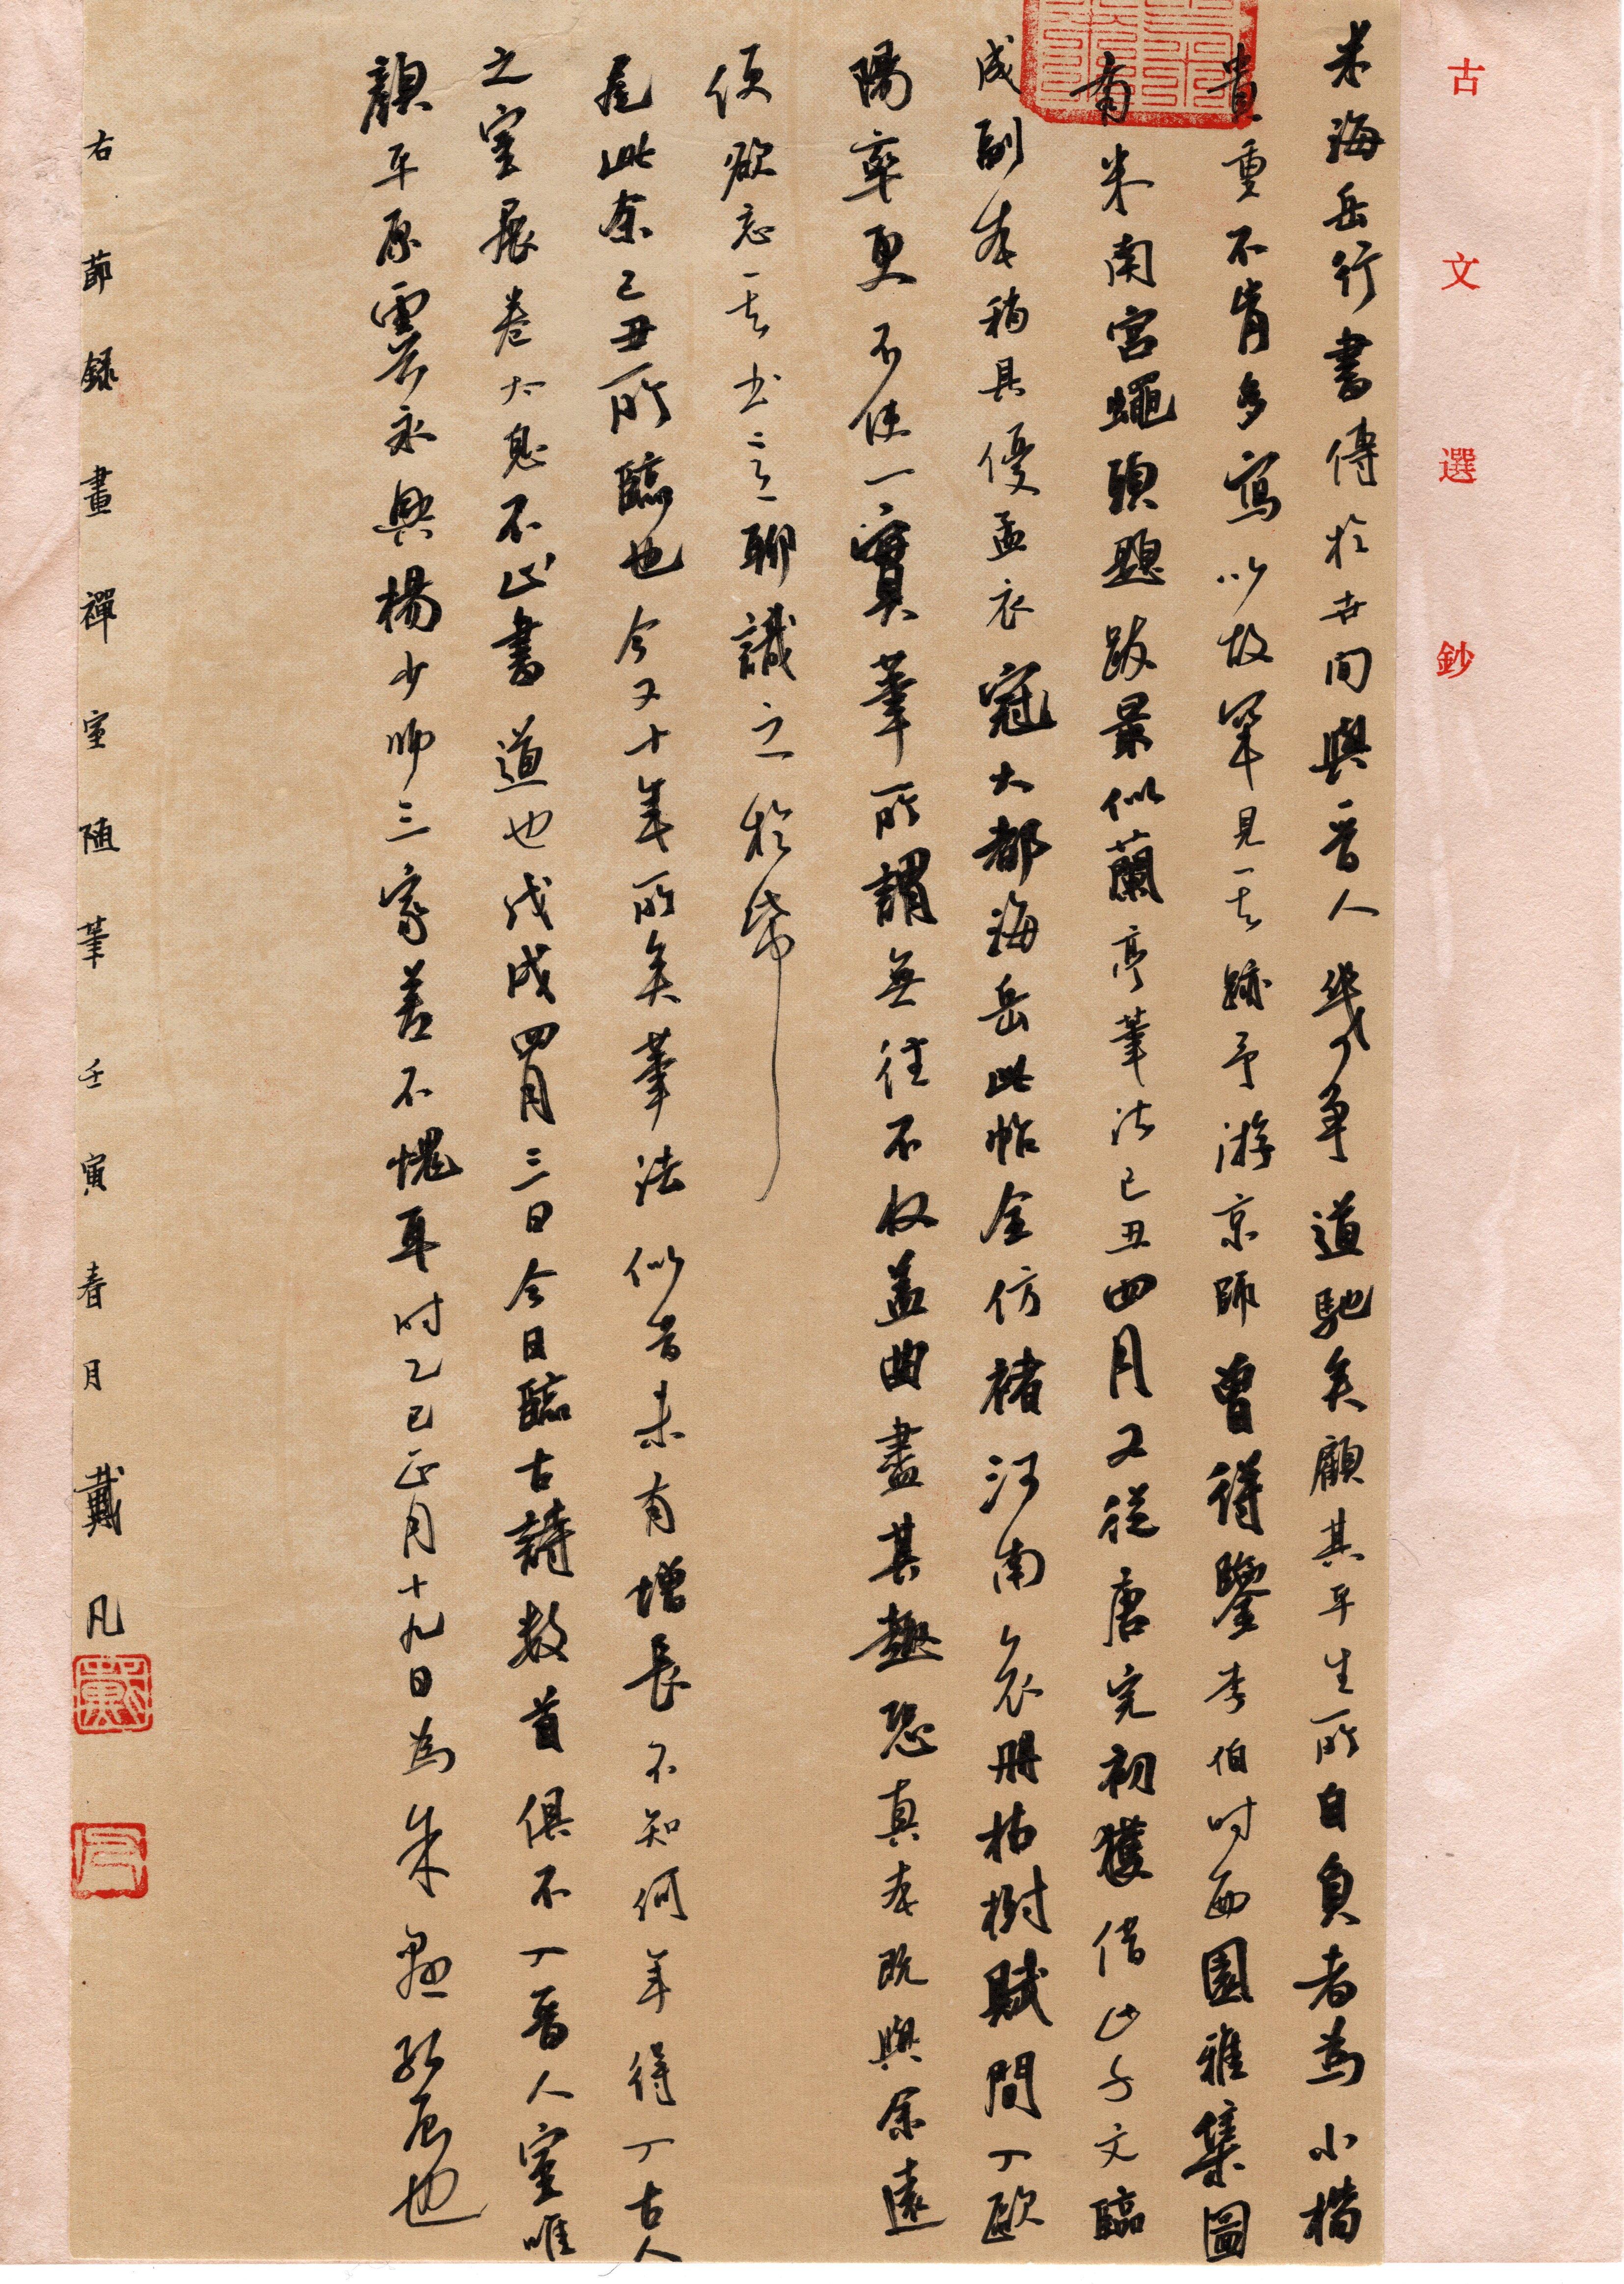 古文選鈔
米海岳行書傳於世間與晋人幾争道馳矣顧其平生所自負者為小楷
貴重不肯多寫以故罕見其跡予游京師曾得鑒李伯时西園雅集圖
有米南宫蠅頭題跋最似蘭亭筆法己丑四月又從唐完初獲借此千文臨
成副本稍具優孟衣冠大都海岳此帖全仿褚河南哀册枯樹賦間入歐
陽率更不使一實筆所謂無往不收盖曲盡其趣恐真本既與余遠
便欲忘其书意聊識之於紙
尾此余己丑所臨也今又十年所矣筆法似昔未有增長不知何年得入古人
之室展卷太息不止書道也戊戌四月三日今日臨古詩数首俱不入晋人室唯
顔平原虞永興楊少师三家差不愧耳时乙巳正月十九日為朱
也
右節録畫禪室随筆壬寅春月戴凡